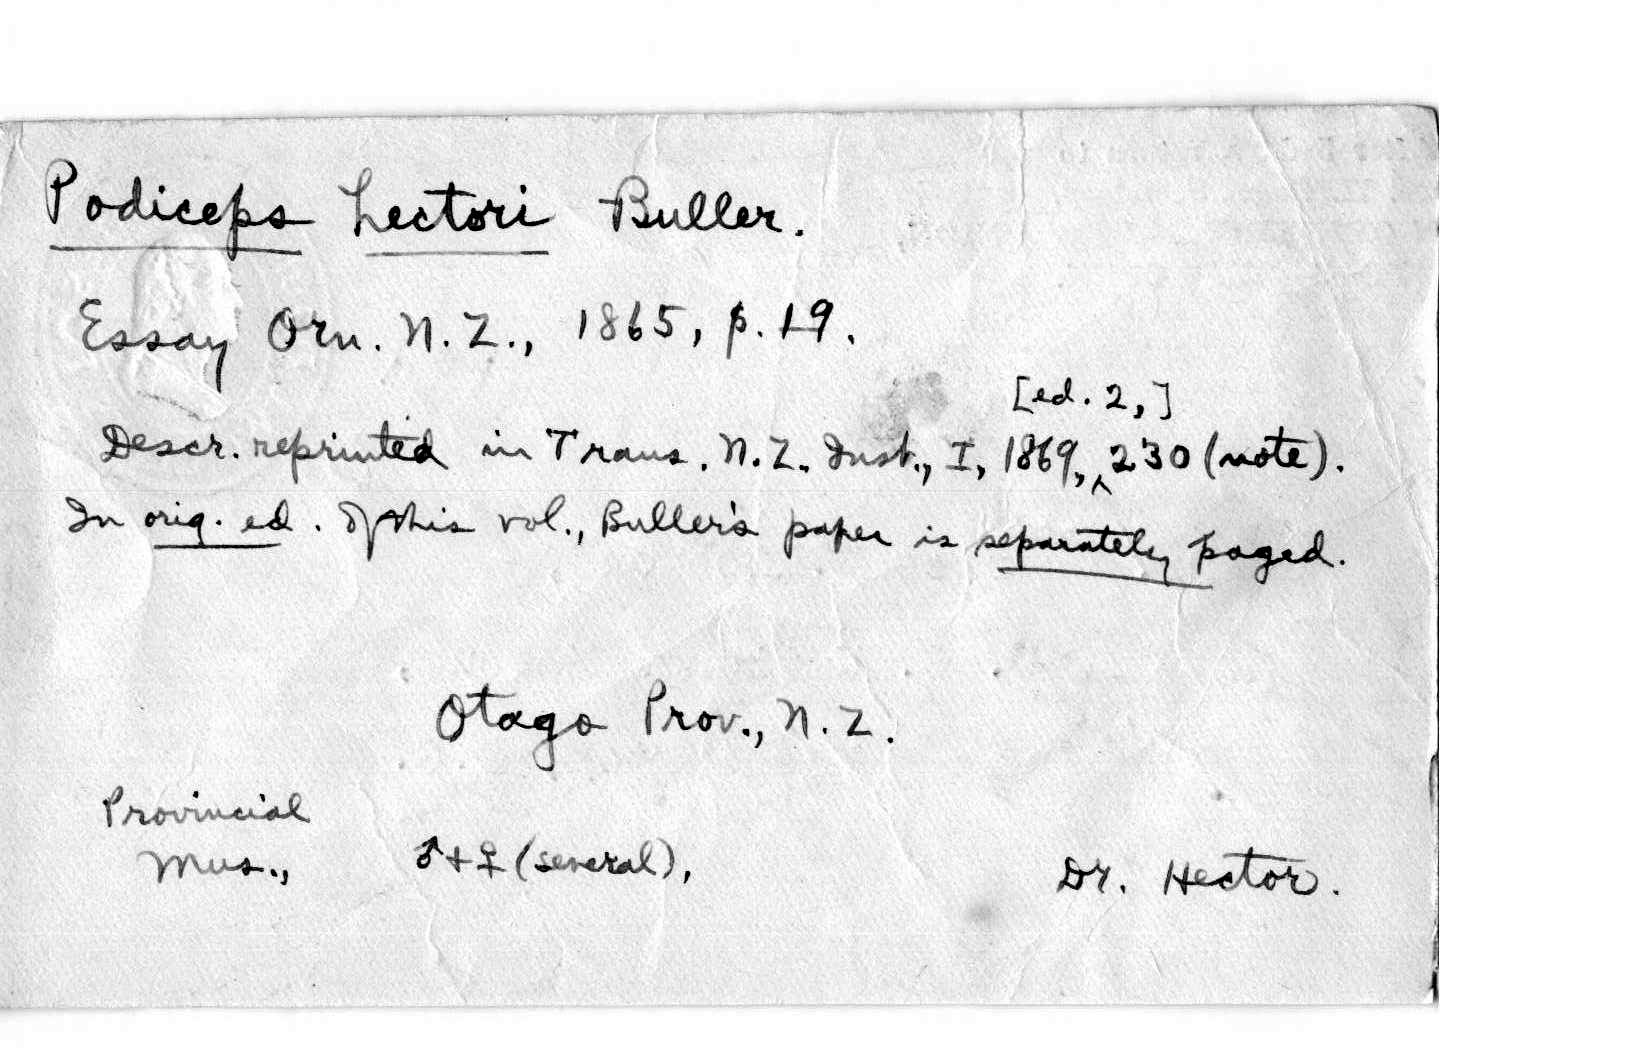 Podiceps hectori Buller.
Essay Orn. N.Z., 1865, p. 19.
[ed. 2,]
Descr. reprinted in Trans. N.Z. Inst., I, 1869, ^ 230 (note).
In orig. ed. of this vol., Buller's paper is separately paged.
Otago Prov., N.Z.
Provincial
Mus., ♂+♀ (several), Dr. Hector.